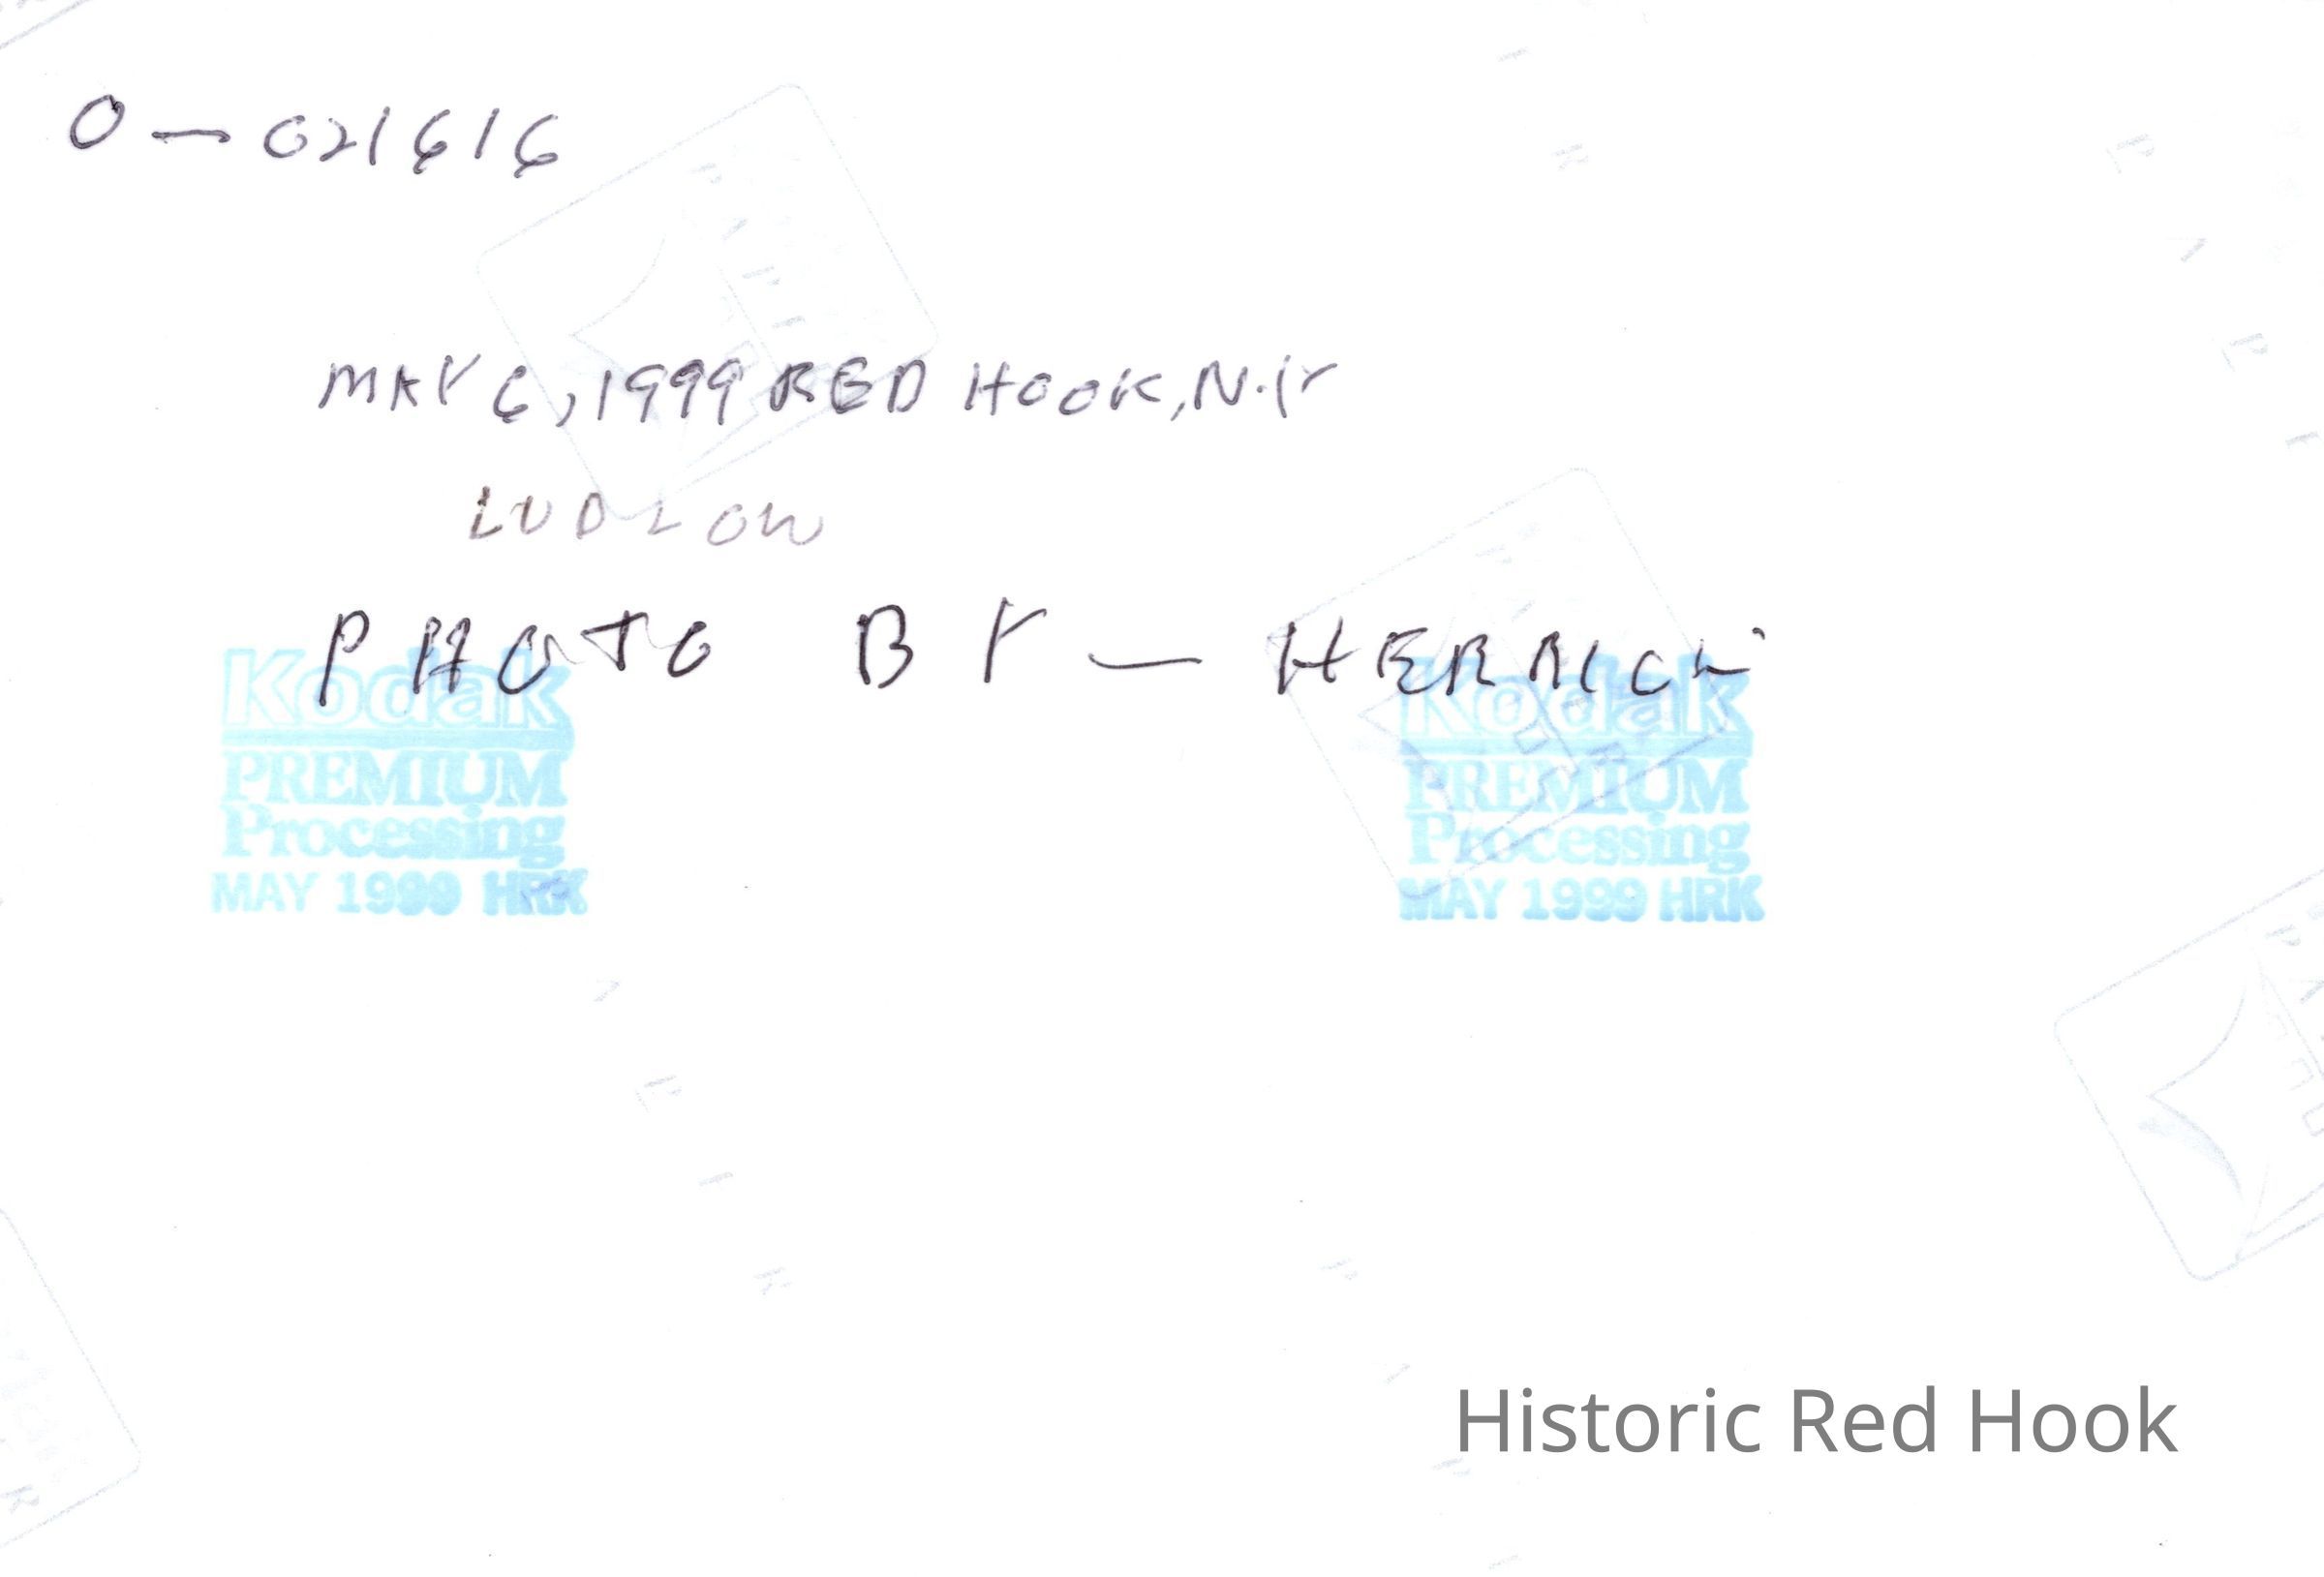 0 — 021616
MAY 6, 1999 RED HOOK, N.Y
LUDLOW
PHOTO BY — HERRICK
Kodak
PREMIUM
Processing
MAY 1999 HRK
Kodak
PREMIUM
Processing
MAY 1999 HRK
Historic Red Hook